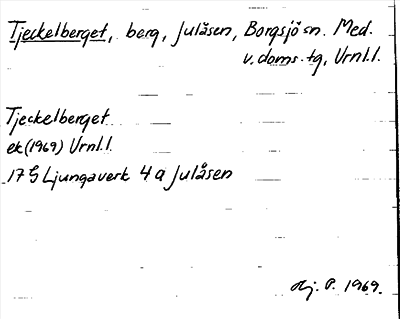 Tjeckelberget, berg, Julåsen, Borgsjö sn. Med.
v. doms. tg, Vrnl.l.
Tjeckelberget
ek (1969) Vrnl.l.
17 G Ljungaverk 4 a Julåsen
P. 1969.